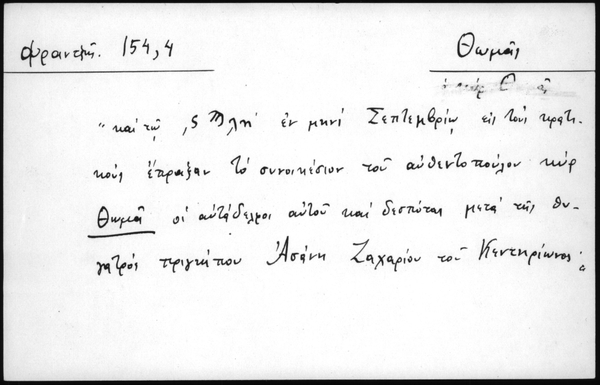 Φραντζῆς. 154,4
Θωμᾶς
"καὶ τῷ ,ϛ Ϡλη' ἐν μηνὶ Σεπτεμβρίῳ εἰς τοὺς πρατι-
κοὺς ἔπραξαν τὸ συνοικέσιον τοῦ αὐθεντοπούλου κὺρ
Θωμᾶ οἱ αὐτάδελφοι αὐτοῦ καὶ δεσπόται μετὰ τῆς θυ-
γατρὸς πριγκίπου Ἀσάνη Ζαχαρίου τοῦ Κεντηρίωνος."